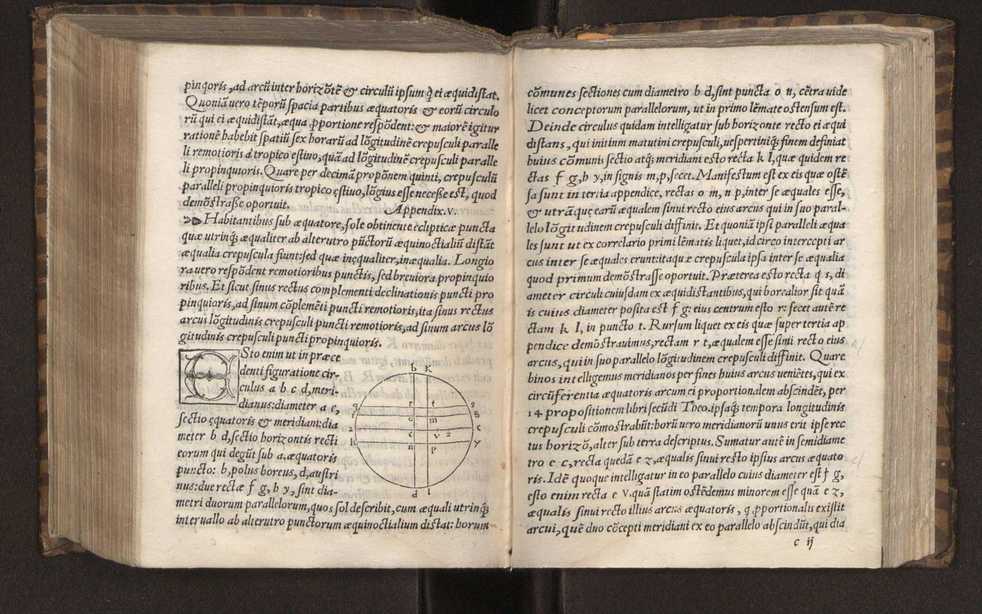 pinqoris, ad arcū inter horizōtē & circulū ipsum q̄ ei æquidistat.
Quoniā uero tēporū spacia partibus æquatoris & eorū circulo
rū qui ei æquidistāt, æqua ꝓportione respōdent: & maiorē igitur
rationē habebit spatiū sex horarū ad lōgitudinē crepusculi paralle
li remotioris à tropico estiuo, quā ad lōgitudinē crepusculi paralle
li propinquioris. Quare per decimā propōnem quinti, crepusculū
paralleli propinquioris tropico estiuo, lōgius esse necesse est, quod
demōstrasse oportuit. Appendix.v.
Habitantibus sub æquatore, sole obtinente eclipticæ puncta
quæ utrinq; æqualiter ab alterutro pūctorū æquinoctialiū distāt
æqualia crepuscula fiunt: sed quæ inęqualiter, inæqualia. Longio
ra uero respōdent remotioribus punctis, sed breuiora propinquio
ribus. Et sicut sinus rectus complementi declinationis puncti pro
pinquioris, ad sinum cōplemēti puncti remotioris, ita sinus rectus
arcui lōgitudinis crepusculi puncti remotioris, ad sinum arcus lō
gitudinis crepusculi puncti propinquioris.
ESto enim ut in præce
denti figuratione cir-
culus a b c d, meri-
dianus: diameter a e,
sectio ęquatoris & meridiani: dia
meter b d, sectio horizontis recti
eorum qui degūt sub a, æquatoris
puncto: b, polus boreus, d, austri
nus: due rectæ f g, h y, sint dia-
metri duorum parallelorum, quos sol describit, cum æquali utrinq;
interuallo ab alterutro punctorum æquinoctialium distat: horum
b K
r t
m
n p
d l
cōmunes sectiones cum diametro b d, sint puncta o n, cētra uide
licet conceptorum parallelorum, ut in primo lēmate ostensum est.
Deinde circulus quidam intelligatur sub horizonte recto ei æqui
distans, qui initium matutini crepusculi, uespertiniq; finem definiat
huius cōmunis sectio atq; meridiani esto recta k l, quæ quidem re
ctas f g, h y, in signis m, p, secet. Manifestum est ex eis quæ ostē
sa sunt in tertia appendice, rectas o m, n p, inter se æquales esse,
& utrāque earū æqualem sinui recto eius arcus qui in suo paral-
lelo lōgitudinem crepusculi diffinit. Et quoniā ipsi paralleli æqua
les sunt ut ex correlario primi lēmatis liquet, idcirco intercepti ar
cus inter se æquales erunt: itaque crepuscula ipsa inter se æqualia
quod primum demōstrasse oportuit. Præterea esto recta q s, di
ameter circuli cuiusdam ex æquidistantibus, qui borealior sit quā
is cuius diameter posita est f g: eius centrum esto r: secet autē re
ctam k l, in puncto t. Rursum liquet ex eis quæ super tertia ap
pendice demōstrauimus, rectam r t, æqualem esse sinui recto eius
arcus, qui in suo parallelo lōgitudinem crepusculi diffinit. Quare
binos intelligemus meridianos per fines huius arcus ueniētes, qui ex
circūferentia æquatoris arcum ei proportionalem abscindēt, per
14 propositionem libri secūdi Theo. ipsaq; tempora longitudinis
crepusculi cōmostrabūt: horū uero meridianorū unus erit ipse rec
tus horizō, alter sub terra descriptus. Sumatur autē in semidiame
tro e c, recta quedā e z, æqualis sinui recto ipsius arcus æquato
ris. Idē quoque intelligatur in eo parallelo cuius diameter est f g,
esto enim recta e v. quā statim ostēdemus minorem esse quā e z,
æqualis sinui recto illius arcus æquatoris, q ꝓportionalis existit
arcui, quē duo cōcepti meridiani ex eo parallelo abscindūt, qui dia
c ij